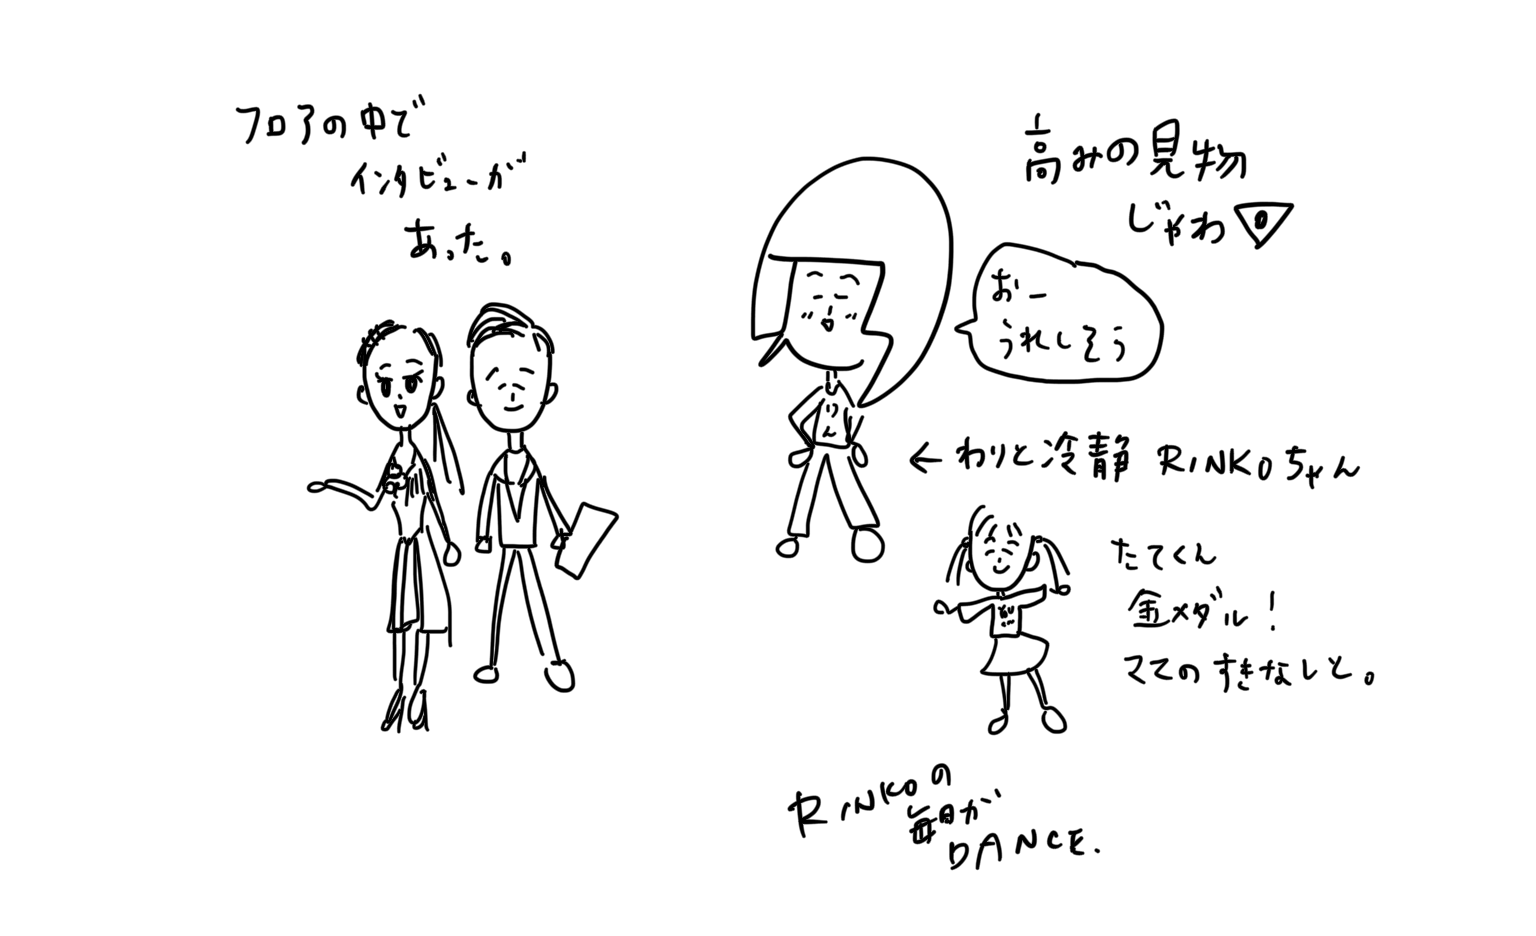 フロアの中で
インタビューが
あった。
高みの見物
じゃわ
おー
うれしそう
りん
←わりと冷静 RINKOちゃん
たてくん
金メダル!
ママのすきなしと。
RINKOの
毎日が
DANCE.